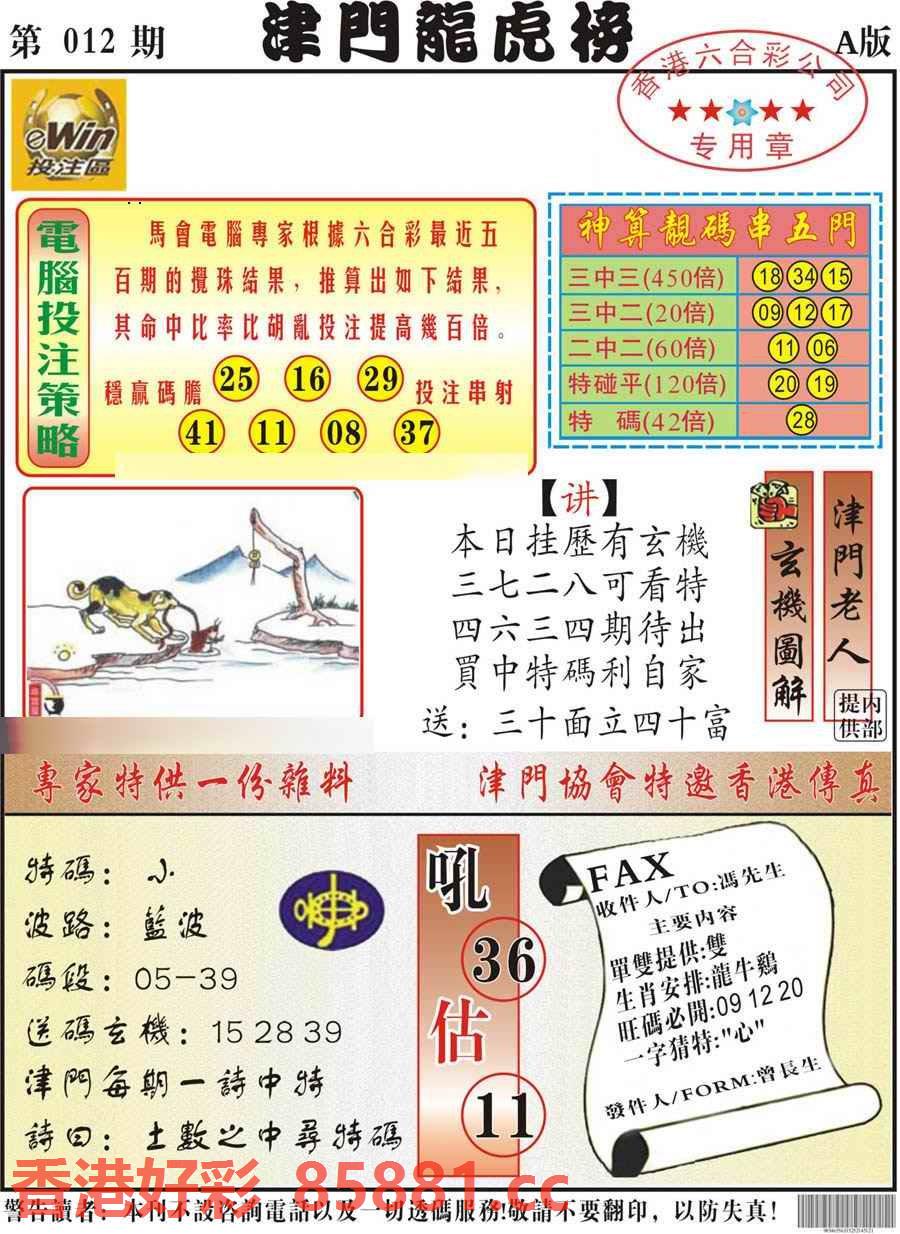 第 012 期
津門龍虎榜
A版
香港六合彩公司
★★★★
专用章
eWin
投注區
電腦投注策略
馬會電腦專家根據六合彩最近五
百期的攪珠結果，推算出如下結果，
其命中比率比胡亂投注提高幾百倍。
穩贏碼膽 25 16 29 投注串射
41 11 08 37
神算靚碼串五門
三中三(450倍) 18 34 15
三中二(20倍) 09 12 17
二中二(60倍) 11 06
特碰平(120倍) 20 19
特 碼(42倍) 28
【讲】
本日挂歷有玄機
三七二八可看特
四六三四期待出
買中特碼利自家
送：三十面立四十富
玄機圖解
津門老人
内部提供
專家特供一份雜料
津門協會特邀香港傳真
特碼：小
波路：藍波
碼段：05-39
送碼玄機：15 28 39
津門每期一詩中特
詩曰：土數之中尋特碼
吼
36
估
11
FAX
收件人/TO:馮先生
主要内容
單雙提供:雙
生肖安排:龍牛鷄
旺碼必開:09 12 20
一字猜特:"心"
發件人/FORM:曾長生
香港好彩 85881.cc
警告讀者：本刊不設咨詢電話以及一切透碼服務!敬請不要翻印，以防失真!